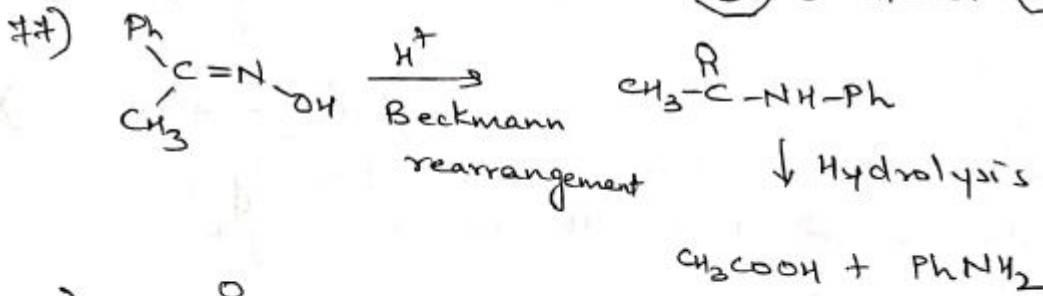 77)
Ph
C=N
OH
CH3
H+
Beckmann
rearrangement
O
CH3-C-NH-Ph
↓ Hydrolysis
CH3COOH + PhNH2